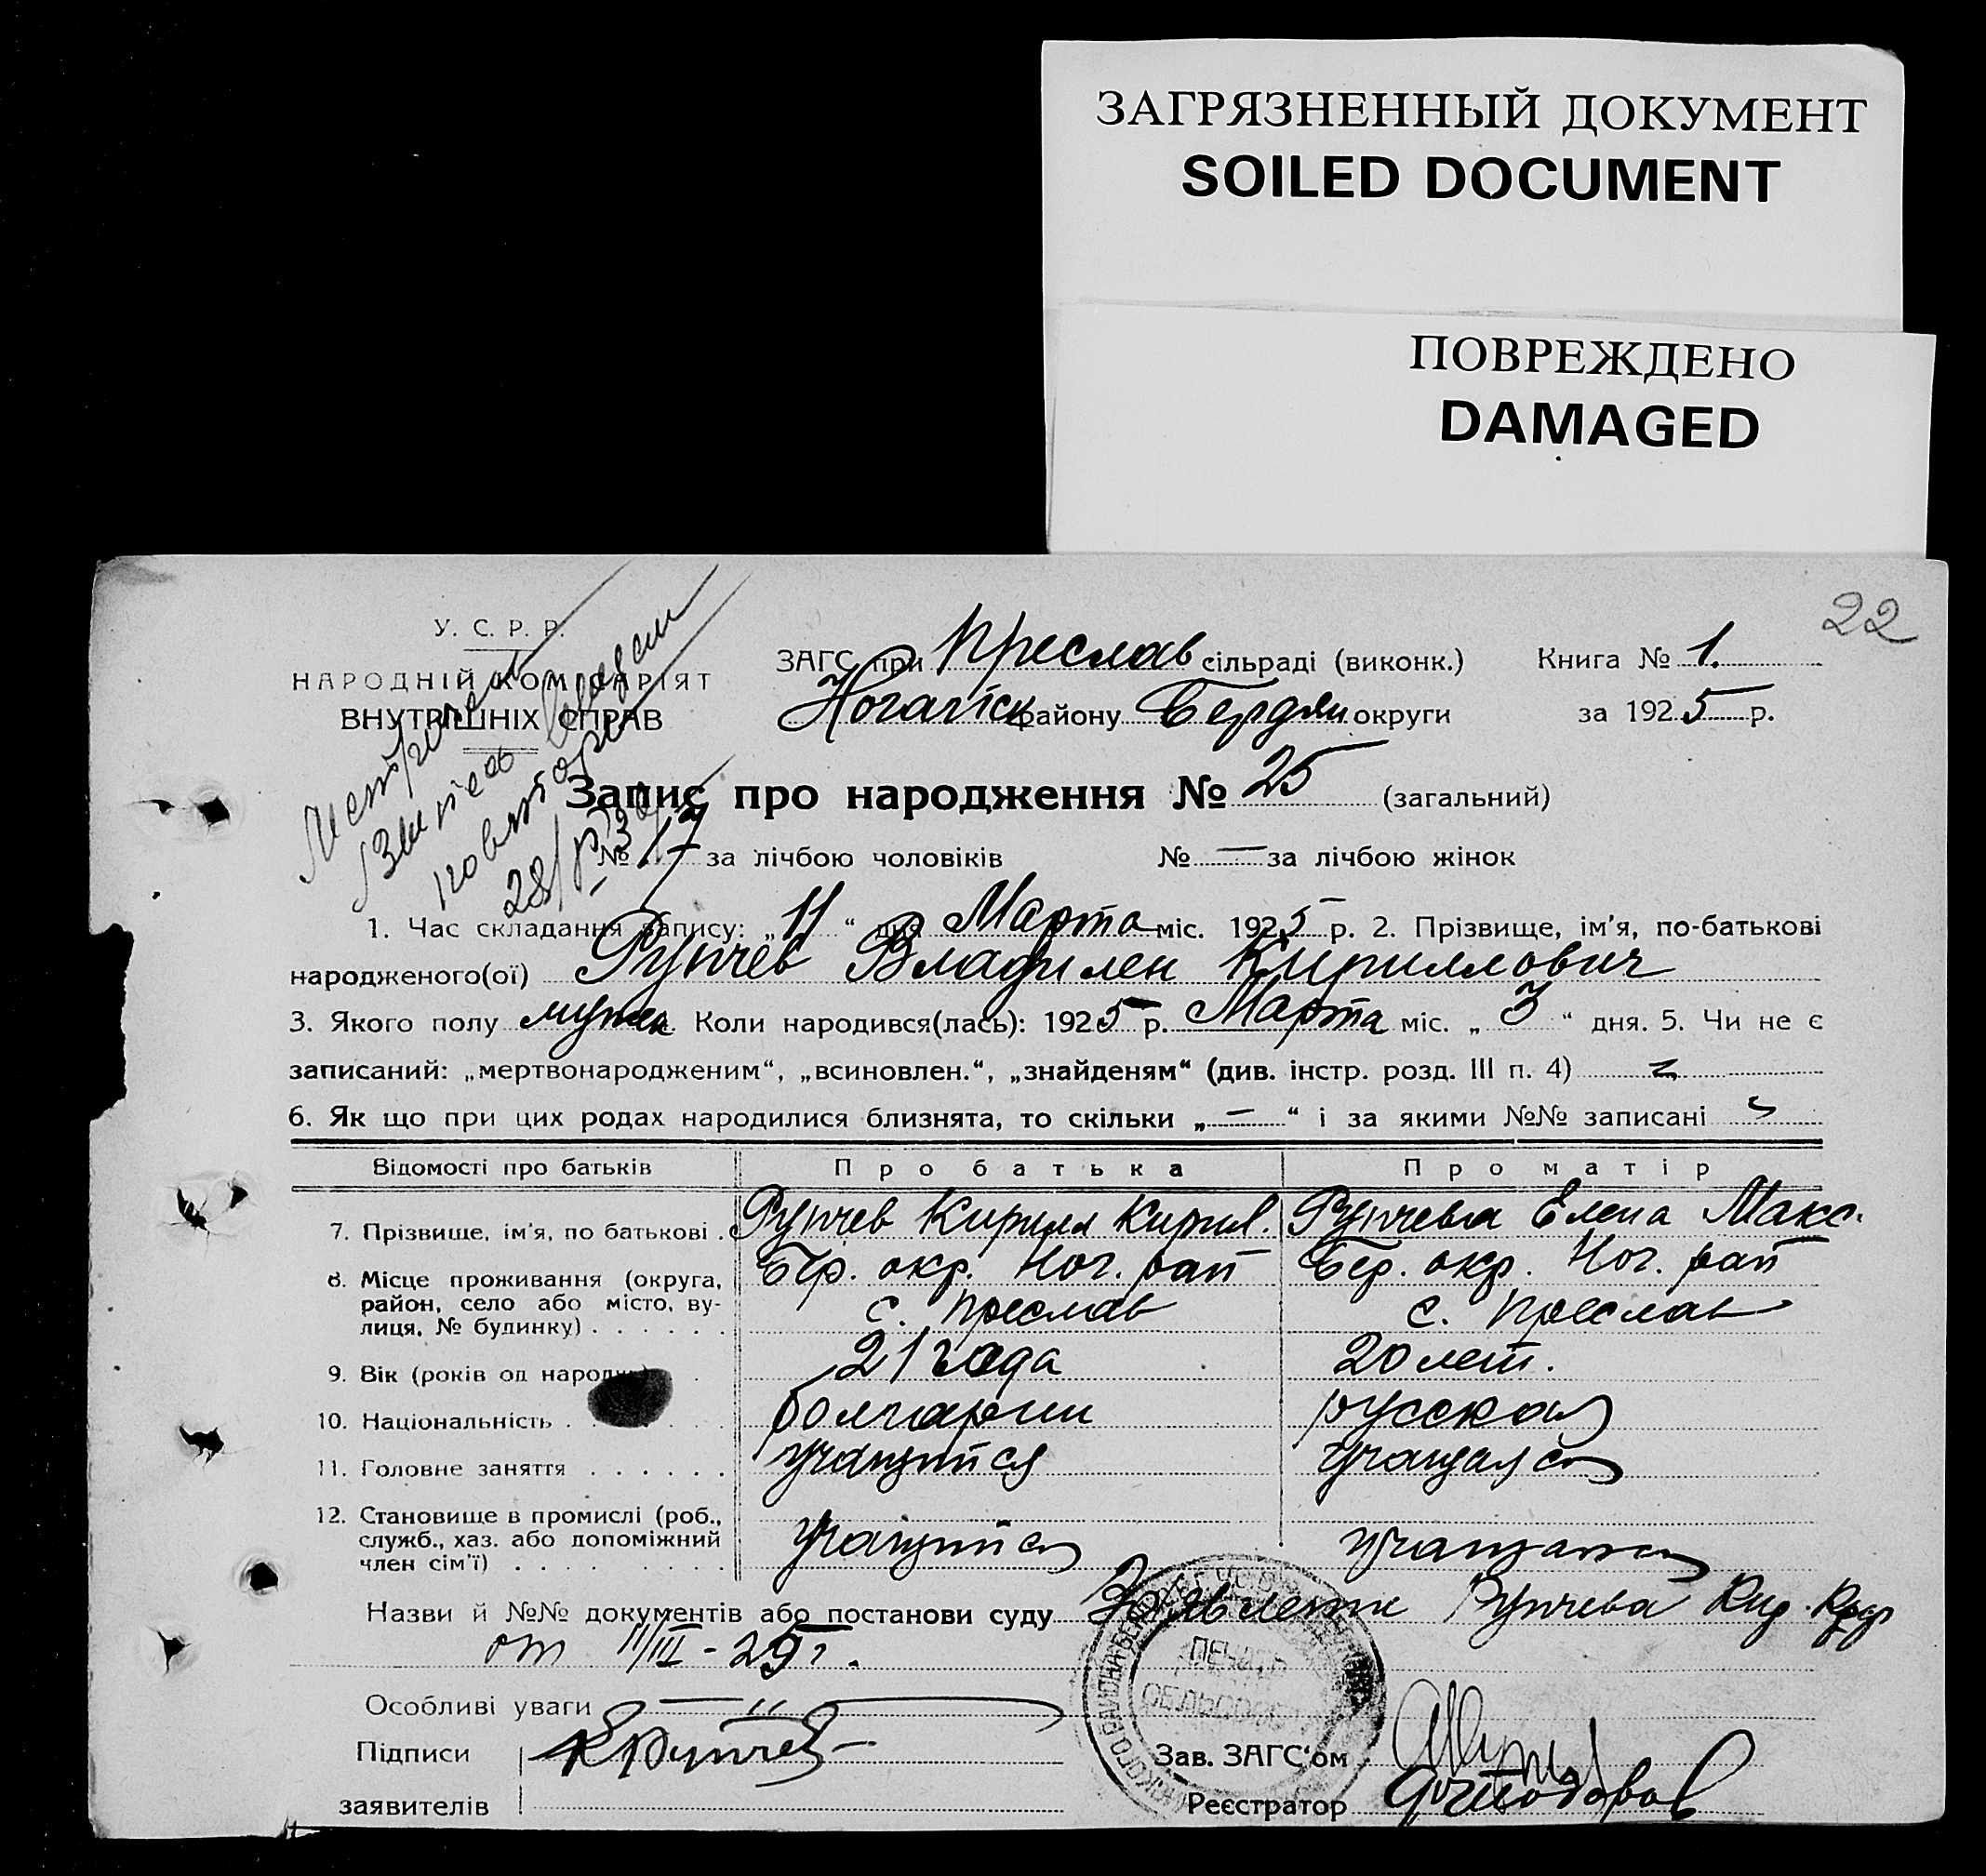 ЗАГРЯЗНЕННЫЙ ДОКУМЕНТ
SOILED DOCUMENT
ПОВРЕЖДЕНО
DAMAGED
22
У. С. Р. Р.
НАРОДНІЙ КОМІСАРІЯТ
ВНУТРІШНІХ СПРАВ
ЗАГС при Преслав сільраді (виконк.) Книга № 1.
Ногайск району Бердян округи за 1925 р.
повторно
Запис про народження № 25 (загальний)
№ 17 за лічбою чоловіків № — за лічбою жінок
1. Час складання запису: „11“ дня Марта міс. 1925 р. 2. Прізвище, ім'я, по-батькові
народженого(ої) Рупчев Владилен Кириллович
3. Якого полу мужск. Коли народився(лась): 1925 р. Марта міс. „3“ дня. 5. Чи не є
записаний: „мертвонародженим“, „всиновлен.“, „знайденям“ (див. інстр. розд. III п. 4)
6. Як що при цих родах народилися близнята, то скільки „—“ і за якими №№ записані
Відомості про батьків Про батька Про матір
7. Прізвище, ім'я, по батькові . Рупчев Кирилл Кирил. Рупчева Елена Макс.
8. Місце проживання (округа, Бер. окр. Ног. рай Бер. окр. Ног. рай
район, село або місто, ву- с. Преслав с. Преслав
лиця, № будинку) . . . . . .
9. Вік (років од народж.) . 21 года 20 лет.
10. Національність . болгарин русская
11. Головне заняття . . . . . . учащийся учащаяся
12. Становище в промислі (роб.,
служб., хаз. або допоміжний учащийся учащаяся
член сім'ї) . . . . . . .
Назви й №№ документів або постанови суду Заявление Рупчева Кир. Кир
от 11/III-25 г.
Особливі уваги — " —
Підписи К Рупчев Зав. ЗАГС'ом
заявителів Реєстратор
ПЕЧАТЬ
СЕЛЬСОВЕТ